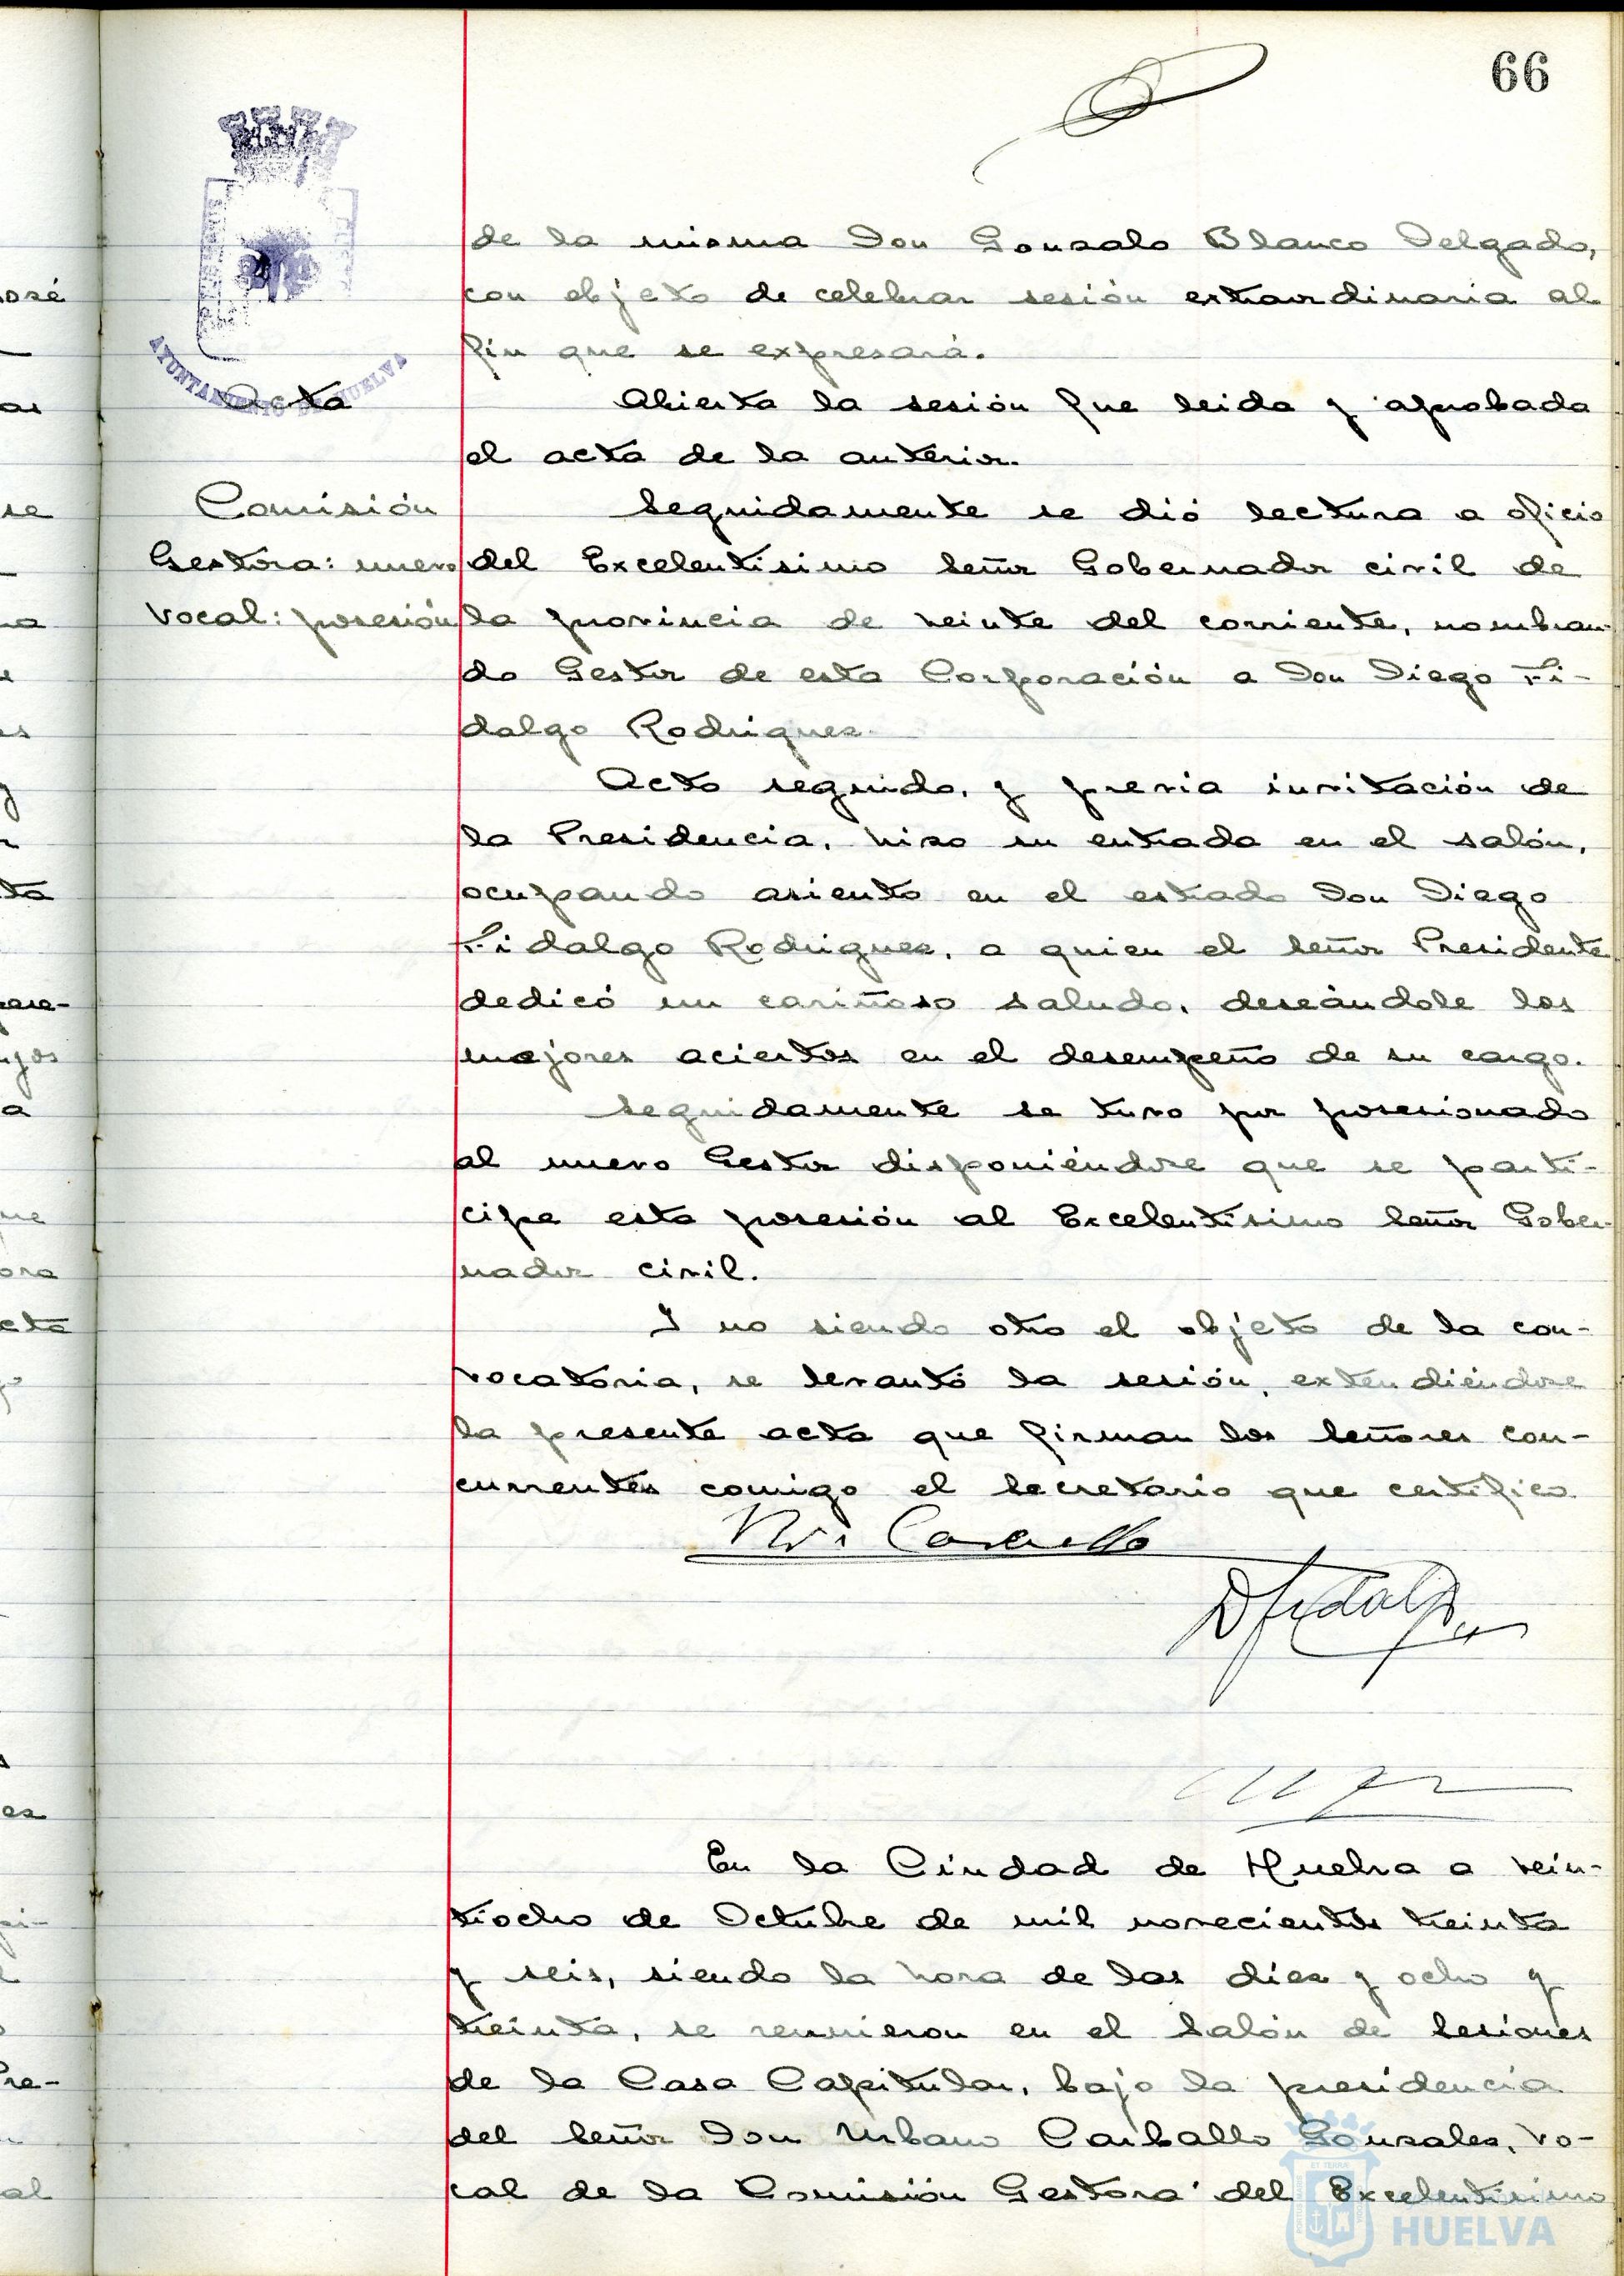 66
de la misma Don Gonzalo Blanco Delgado,
con objeto de celebrar sesión extraordinaria al
fin que se expresará.
AYUNTAMIENTO DE HUELVA
Acta
Abierta la sesión fue leida y aprobada
el acta de la anterior.
Comisión
Gestora: nuevo
Vocal: posesión
Seguidamente se dió lectura a oficio
del Excelentisimo Señor Gobernador civil de
la provincia de veinte del corriente, nombran-
do Gestor de esta Corporación a Don Diego Fi-
dalgo Rodriguez.
Acto seguido, y previa invitación de
la Presidencia, hizo su entrada en el salón,
ocupando asiento en el estrado Don Diego
Fidalgo Rodriguez, a quien el Señor Presidente
dedicó un cariñoso saludo, deseándole los
mejores aciertos en el desempeño de su cargo.
Seguidamente se tuvo por posesionado
al nuevo Gestor disponiéndose que se parti-
cipe esta posesión al Excelentisimo Señor Gober-
nador civil.
Y no siendo otro el objeto de la con-
vocatoria, se levantó la sesión, extendiéndose
la presente acta que firman los Señores con-
currentes comigo el Secretario que certifico.
Carballo
DFidalgo
En la Ciudad de Huelva a vein-
tiocho de Octubre de mil novecientos treinta
y seis, siendo la hora de las diez y ocho y
treinta, se reunieron en el Salón de Sesiones
de la Casa Capitular, bajo la presidencia
del Señor Don Urbano Carballo Gonzalez, Vo-
cal de la Comisión Gestora del Excelentisimo
HUELVA